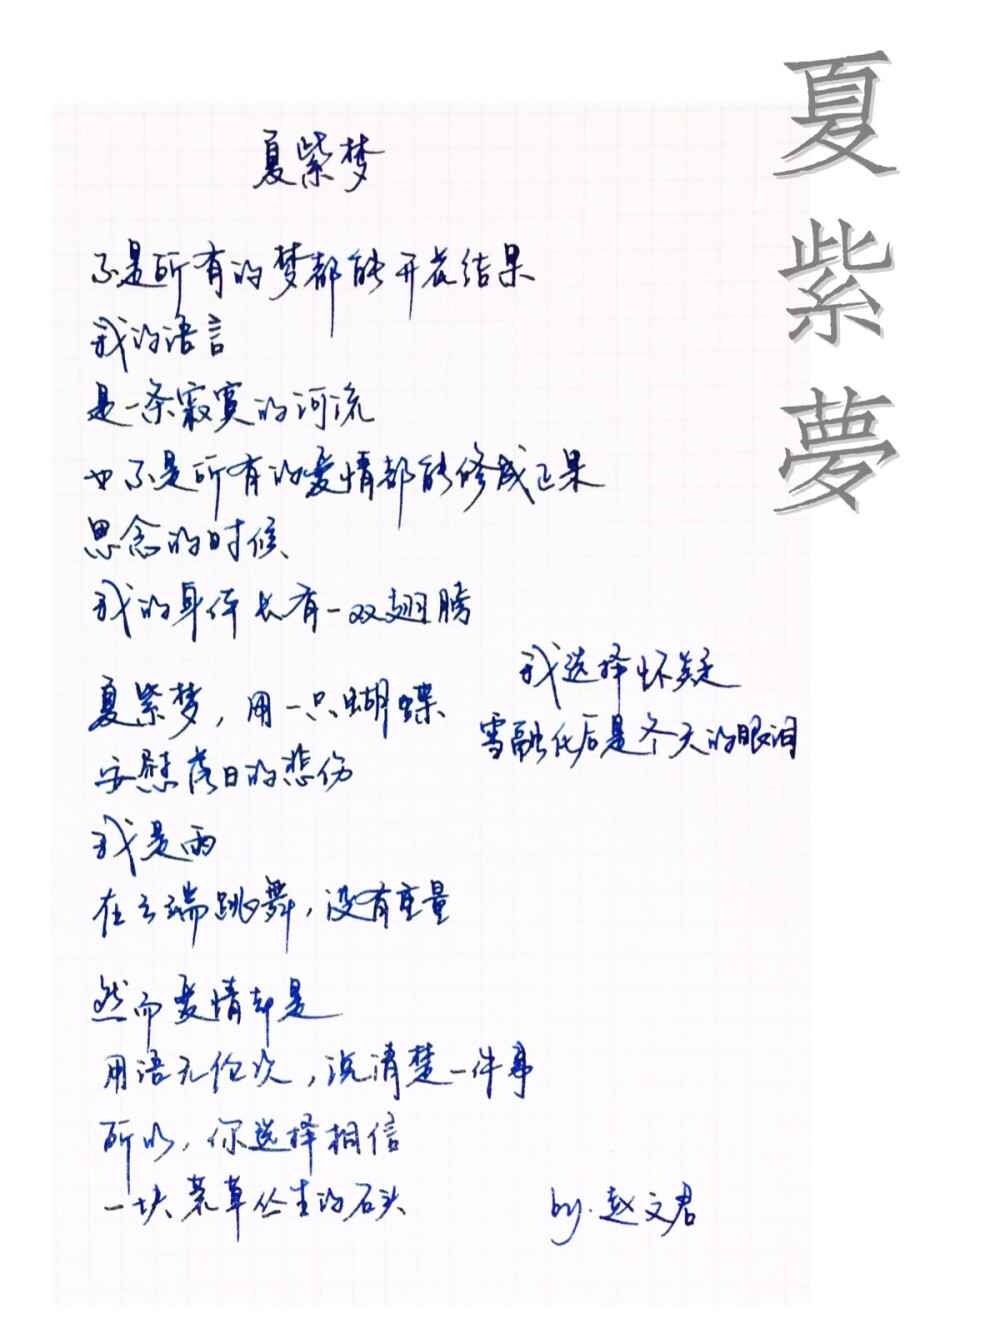 夏紫梦
不是所有的梦都能开花结果
我的语言
是一条寂寞的河流
也不是所有的爱情都能修成正果
思念的时候
我的身体长有一双翅膀
夏紫梦，用一只蝴蝶
安慰落日的悲伤
我是雨
在云端跳舞，没有重量
然而爱情却是
用语无伦次，说清楚一件事
所以，你选择相信
一块荒草丛生的石头
我选择怀疑
雪融化后是冬天的眼泪
by.赵文君
夏紫夢